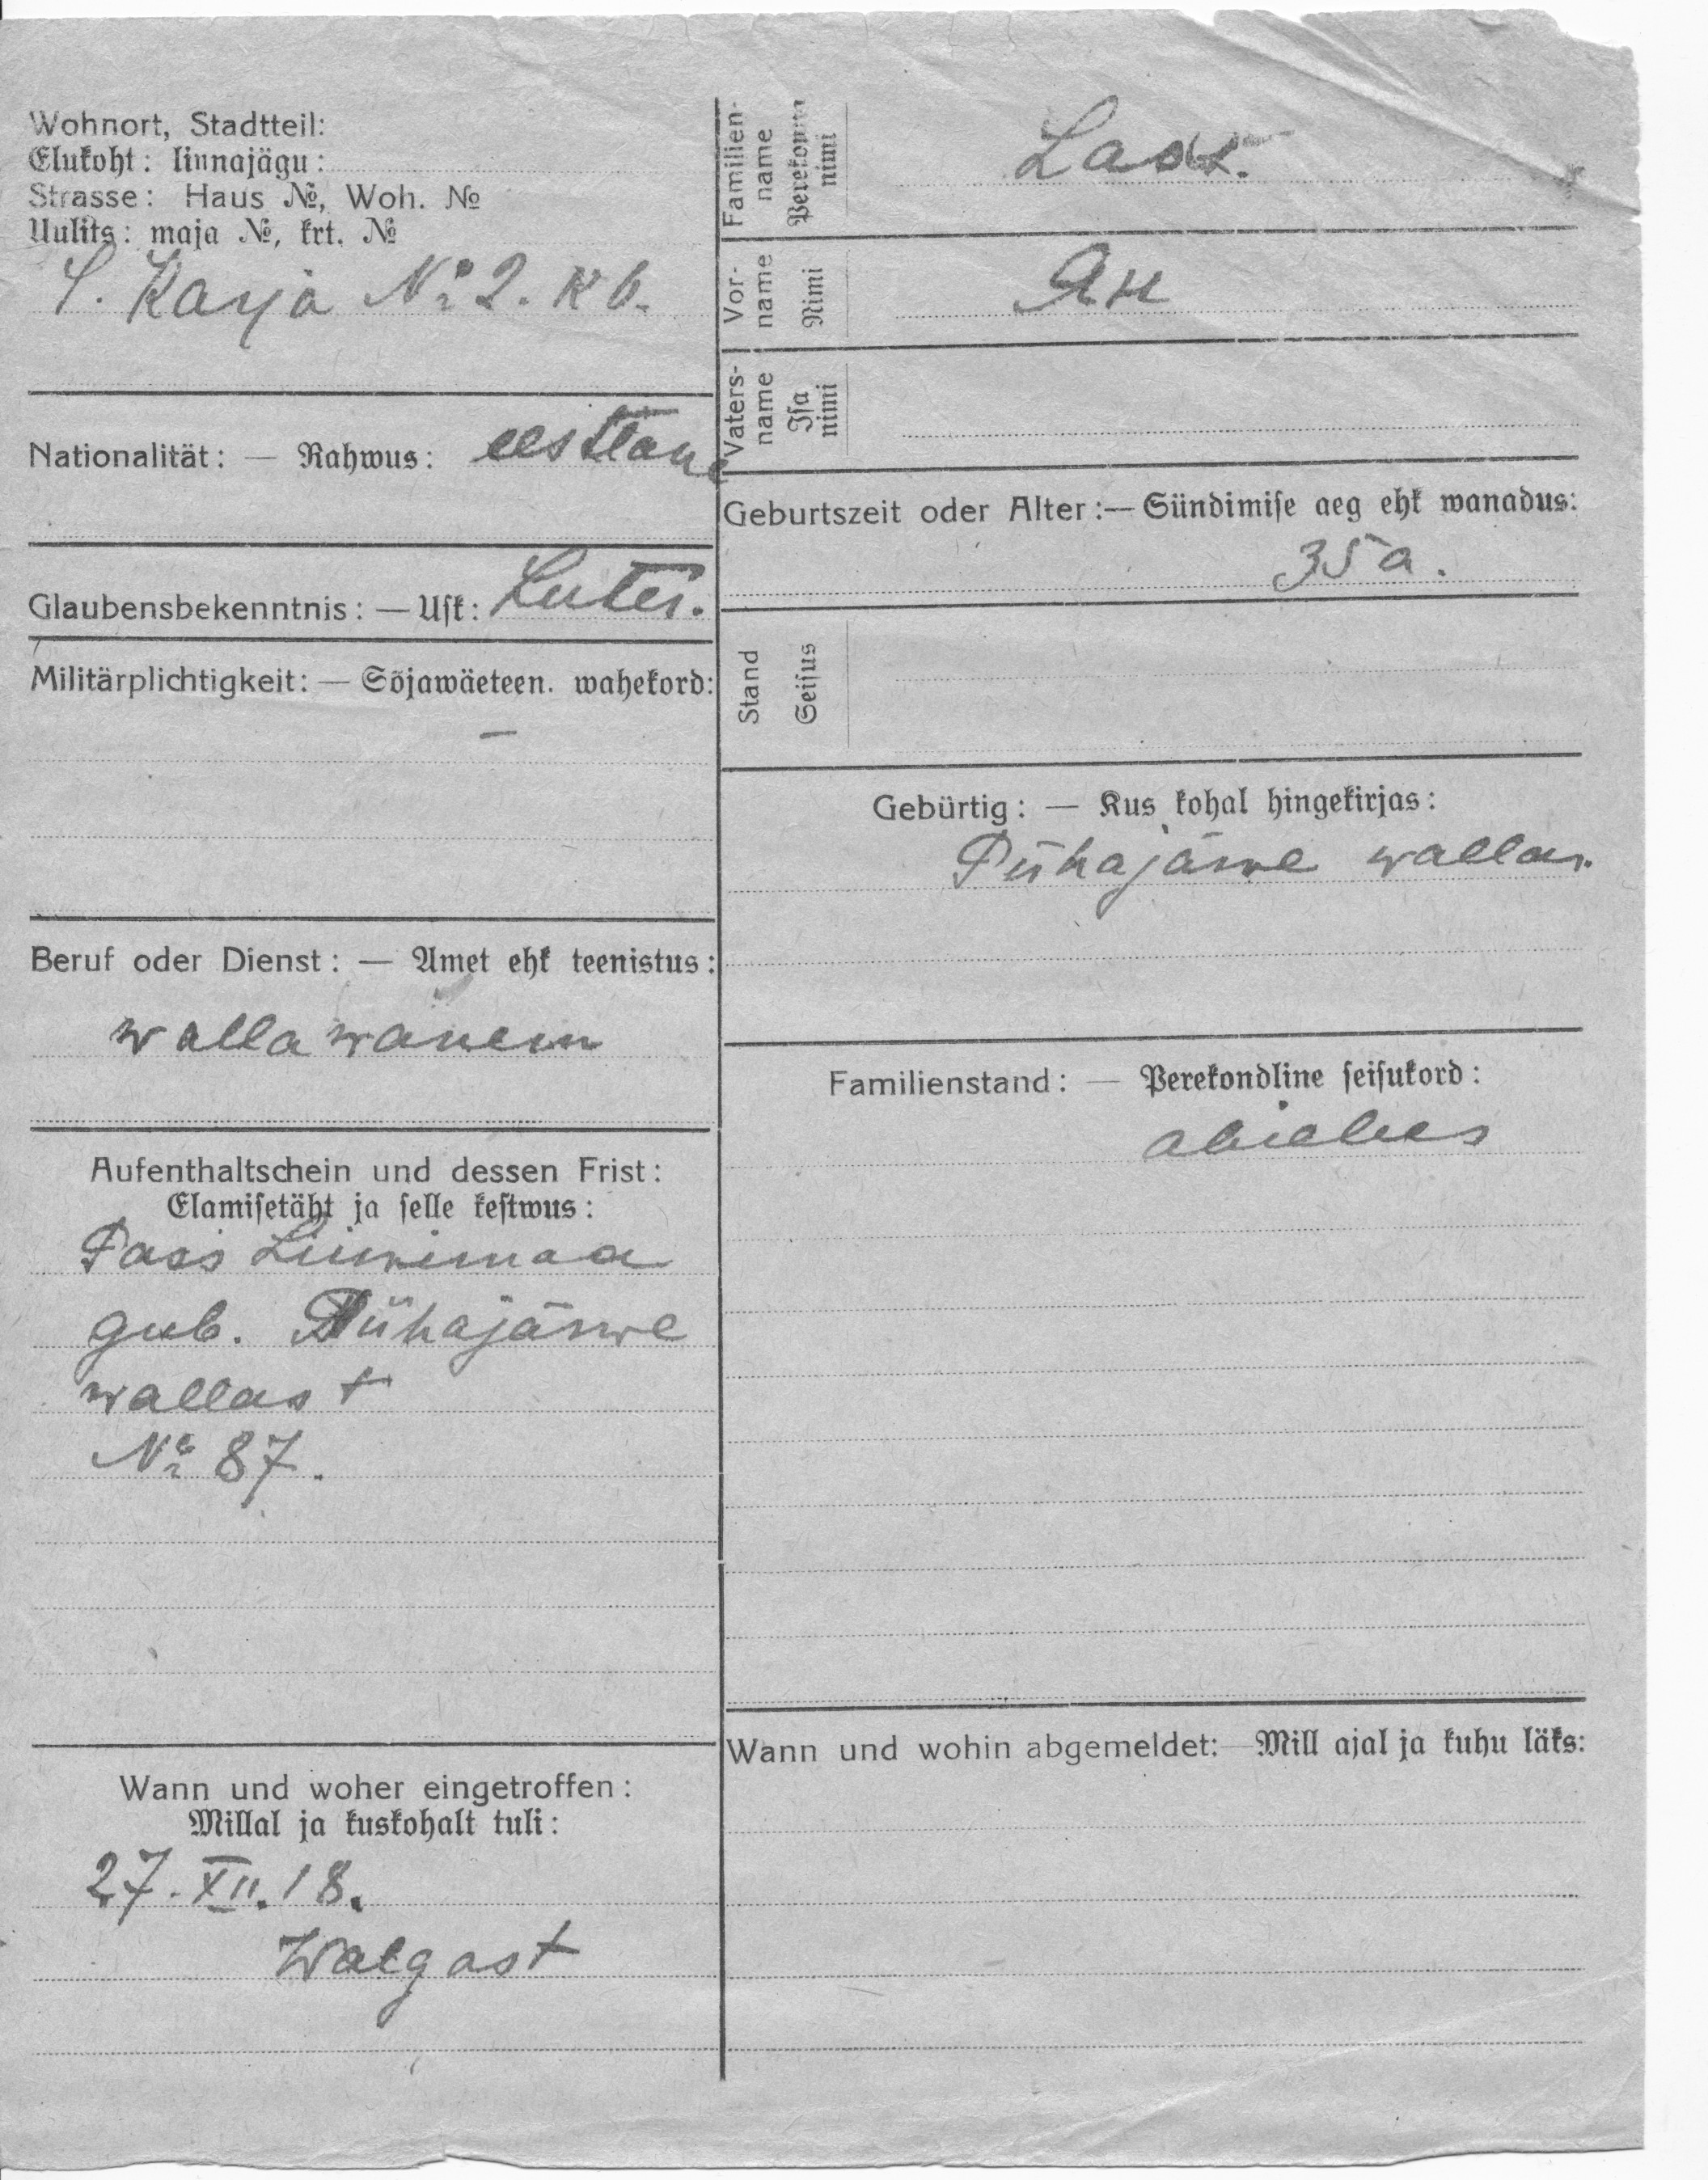 Wohnort, Stadtteil:
Elukoht: linnajägu:
Strasse: Haus №, Woh. №
Uulits: maja №, krt. №
S. Karja № 2. K 6.
Nationalität: — Rahwus: eestlane
Glaubensbekenntnis: — Usk: Luter.
Militärplichtigkeit: — Sõjawäeteen. wahekord:
—
Beruf oder Dienst: — Amet ehk teenistus:
wallawanem
Aufenthaltschein und dessen Frist:
Elamisetäht ja selle kestwus:
Pass Liiwimaa
gub. Pühajärwe
wallast
№ 87.
Wann und woher eingetroffen:
Millal ja kuskohalt tuli:
27. XII. 18.
Walgast
Familien-
name
Perekonna
nimi
Vor-
name
Nimi
Ян
Vaters-
name
Isa
nimi
Geburtszeit oder Alter:— Sündimise aeg ehk wanadus:
35 a.
Stand
Seisus
Gebürtig: — Kus kohal hingekirjas:
Pühajärwe wallas.
Familienstand: — Perekondline seisukord:
abielus
Wann und wohin abgemeldet:—Mill ajal ja kuhu läks: